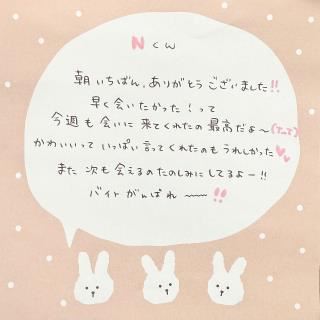 Nくん
朝いちばん、ありがとうございました!!
早く会いたかった!って
今週も会いに来てくれたの最高だよ〜(T_T)
かわいいっていっぱい言ってくれたのもうれしかった♥♥
また次も会えるのたのしみにしてるよー!!
バイトがんばれ〜〜!!